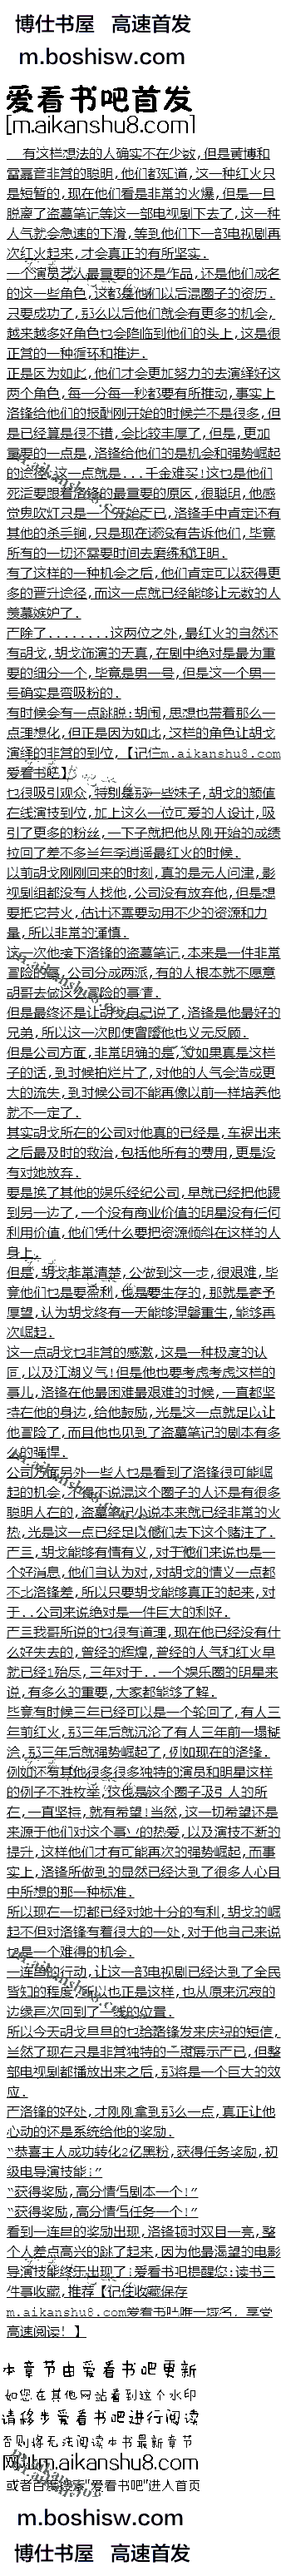 博仕书屋 高速首发
m.boshisw.com
爱看书吧首发
[m.aikanshu8.com]
有这样想法的人确实不在少数,但是黄博和
雷嘉音非常的聪明,他们都知道,这一种红火只
是短暂的,现在他们看是非常的火爆,但是一旦
脱离了盗墓笔记等这一部电视剧下去了,这一种
人气就会急速的下滑,等到他们下一部电视剧再
次红火起来,才会真正的有所坚实.
一个演员艺人最重要的还是作品,还是他们成名
的这一些角色,这都是他们以后混圈子的资历.
只要成功了,那么以后他们就会有更多的机会,
越来越多好角色也会降临到他们的头上,这是很
正常的一种循环和推进.
正是因为如此,他们才会更加努力的去演绎好这
两个角色,每一分每一秒都要有所推动,事实上
洛锋给他们的报酬刚开始的时候并不是很多,但
是已经算是很不错,会比较丰厚了,但是,更加
重要的一点是,洛锋给他们的是机会和强势崛起
的途径,这一点就是...千金难买!这也是他们
死活要跟着洛锋的最重要的原因,很聪明,他感
觉鬼吹灯只是一个开始而已,洛锋手中肯定还有
其他的杀手锏,只是现在还没有告诉他们,毕竟
所有的一切还需要时间去磨练和证明.
有了这样的一种机会之后,他们肯定可以获得更
多的晋升途径,而这一点就已经能够让无数的人
羡慕嫉妒了.
而除了........这两位之外,最红火的当然还
有胡戈,胡戈饰演的天真,在剧中绝对是最为重
要的细分一个,毕竟是男一号,但是这一个男一
号确实是弯吸粉的.
有时候会有一点跳脱:胡闹,思想也带着那么一
点理想化,但正是因为如此,这样的角色让胡戈
演绎的非常的到位,【记住m.aikanshu8.com
爱看书吧】
也很吸引观众,特别是那一些妹子,胡戈的颜值
在线演技到位,加上这么一位可爱的人设计,吸
引了更多的粉丝,一下子就把他从刚开始的成绩
拉回了差不多当年李逍遥最红火的时候.
以前胡戈刚刚回来的时刻,真的是无人问津,影
视剧组都没有人找他,公司没有放弃他,但是想
要把它带火,估计还需要动用不少的资源和力
量,所以非常的谨慎.
这一次他接下洛锋的盗墓笔记,本来是一件非常
冒险的事,公司分成两派,有的人根本就不愿意
胡哥去做这么冒险的事情.
但是最终还是让胡戈自己说了,洛锋是他最好的
兄弟,所以这一次即使冒险他也义无反顾.
但是公司方面,非常明确的是,对如果真是这样
子的话,到时候拍烂片了,对他的人气会造成更
大的流失,到时候公司不能再像以前一样培养他
就不一定了.
其实胡戈所在的公司对他真的已经是,车祸出来
之后最及时的救治,包括他所有的费用,更是没
有对她放弃.
要是换了其他的娱乐经纪公司,早就已经把他踢
到另一边了,一个没有商业价值的明星没有任何
利用价值,他们凭什么要把资源倾斜在这样的人
身上.
但是,胡戈非常清楚,公做到这一步,很艰难,毕
竟他们也是要盈利,也是要生存的,那就是寄予
厚望,认为胡戈终有一天能够涅磐重生,能够再
次崛起.
这一点胡戈也非常的感激,这是一种极度的认
同,以及江湖义气!但是他也要考虑考虑这样的
事儿,洛锋在他最困难最艰难的时候,一直都坚
持在他的身边,给他鼓励,光是这一点就足以让
他冒险了,而且他也见到了盗墓笔记的剧本有多
么的强悍.
公司方面另外一些人也是看到了洛锋很可能崛
起的机会,不得不说混这个圈子的人还是有很多
聪明人在的,盗墓笔记小说本来就已经非常的火
热,光是这一点已经足以他们去下这个赌注了.
而且,胡戈能够有情有义,对于他们来说也是一
个好消息,他们自认为对,对胡戈的情义一点都
不比洛锋差,所以只要胡戈能够真正的起来,对
于..公司来说绝对是一件巨大的利好.
而且我哥所说的也很有道理,现在他已经没有什
么好失去的,曾经的辉煌,曾经的人气和红火早
就已经1殆尽,三年对于..一个娱乐圈的明星来
说,有多么的重要,大家都能够了解.
毕竟有时候三年已经可以是一个轮回了,有人三
年前红火,那三年后就沉沦了有人三年前一塌糊
涂,那三年后就强势崛起了,例如现在的洛锋.
例如还有其他很多很多独特的演员和明星这样
的例子不胜枚举,这也是这个圈子吸引人的所
在,一直坚持,就有希望!当然,这一切希望还是
来源于他们对这个事业的热爱,以及演技不断的
提升,这样他们才有可能再次的强势崛起,而事
实上,洛锋所做到的显然已经达到了很多人心目
中所想的那一种标准.
所以现在一切都已经对她十分的有利,胡戈的崛
起不但对洛锋有着很大的一处,对于他自己来说
也是一个难得的机会.
一连串的行动,让这一部电视剧已经达到了全民
皆知的程度,三队也正是这样,也从原来沉寂的
边缘再次回到了一线的位置.
所以今天胡戈早早的也给洛锋发来庆祝的短信,
当然了现在只是非常独特的一肃展示而已,但整
部电视剧都播放出来之后,那将是一个巨大的效
应.
而洛锋的好处,才刚刚拿到那么一点,真正让他
心动的还是系统给他的奖励.
“恭喜主人成功转化2亿黑粉,获得任务奖励,初
级电导演技能!”
“获得奖励,高分情侣剧本一个!”
“获得奖励,高分情侣任务一个!”
看到一连串的奖励出现,洛锋顿时双目一亮,整
个人差点高兴的跳了起来,因为他最渴望的电影
导演技能终于出现了!爱看书吧提醒您:读书三
件事收藏,推荐【记住收藏保存
m.aikanshu8.com爱看书吧唯一域名，享受
高速阅读！】
本章节由爱看书吧更新
如您在其他网站看到这个水印
请移步爱看书吧进行阅读
否则将无法阅读本书最新章节
网址m.aikanshu8.com
或者百度搜索"爱看书吧"进入首页
m.boshisw.com
博仕书屋 高速首发